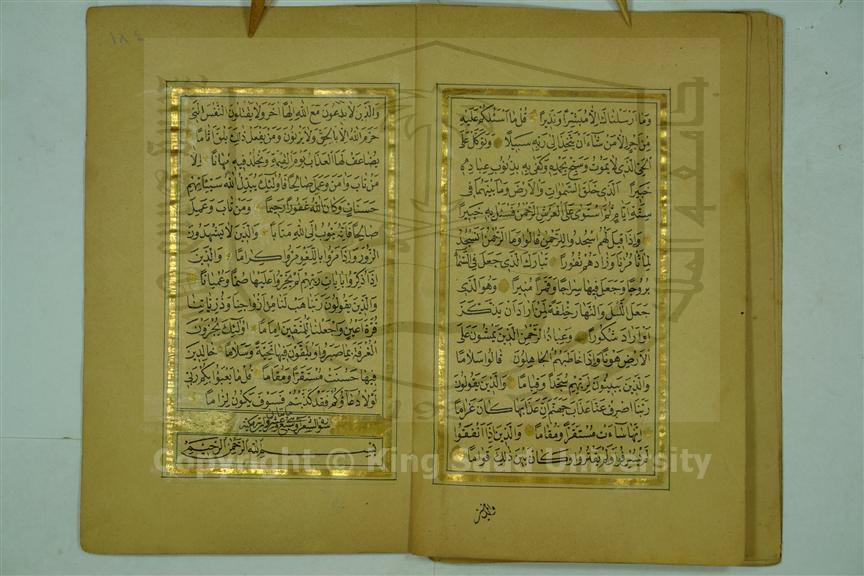 وما ارسلناك الا مبشرا ونذيرا قل ما اسئلكم عليه
من اجر الا من شاء ان يتخذ الى ربه سبيلا وتوكل على
الحي الذي لا يموت وسبح بحمده وكفى به بذنوب عباده
خبيرا الذي خلق السموات والارض وما بينهما في
ستة ايام ثم استوى على العرش الرحمن فسئل به خبيرا
واذا قيل لهم اسجدوا للرحمن قالوا وما الرحمن انسجد
لما تأمرنا وزادهم نفورا تبارك الذي جعل في السماء
بروجا وجعل فيها سراجا وقمرا منيرا وهو الذي
جعل الليل والنهار خلفة لمن اراد ان يذكر
او اراد شكورا وعباد الرحمن الذين يمشون على
الارض هونا واذا خاطبهم الجاهلون قالوا سلاما
والذين يبيتون لربهم سجدا وقياما والذين يقولون
ربنا اصرف عنا عذاب جهنم ان عذابها كان غراما
انها ساءت مستقرا ومقاما والذين اذا انفقوا
لم يسرفوا ولم يقتروا وكان بين ذلك قواما
والذين
١٨٤
والذين لا يدعون مع الله الها اخر ولا يقتلون النفس التي
حرم الله الا بالحق ولا يزنون ومن يفعل ذلك يلق اثاما
يضاعف له العذاب يوم القيمة ويخلد فيه مهانا الا
من تاب وامن وعمل صالحا فاولئك يبدل الله سيئاتهم
حسنات وكان الله غفورا رحيما ومن تاب وعمل
صالحا فانه يتوب الى الله متابا والذين لا يشهدون
الزور واذا مروا باللغو مروا كراما والذين
اذا ذكروا بايات ربهم لم يخروا عليها صما وعميانا
والذين يقولون ربنا هب لنا من ازواجنا وذرياتنا
قرة اعين واجعلنا للمتقين اماما اولئك يجزون
الغرفة بما صبروا ويلقون فيها تحية وسلاما خالدين
فيها حسنت مستقرا ومقاما قل ما يعبؤا بكم ربي
لولا دعاؤكم فقد كذبتم فسوف يكون لزاما
بسم الله الرحمن الرحيم
Copyright © King Saud University